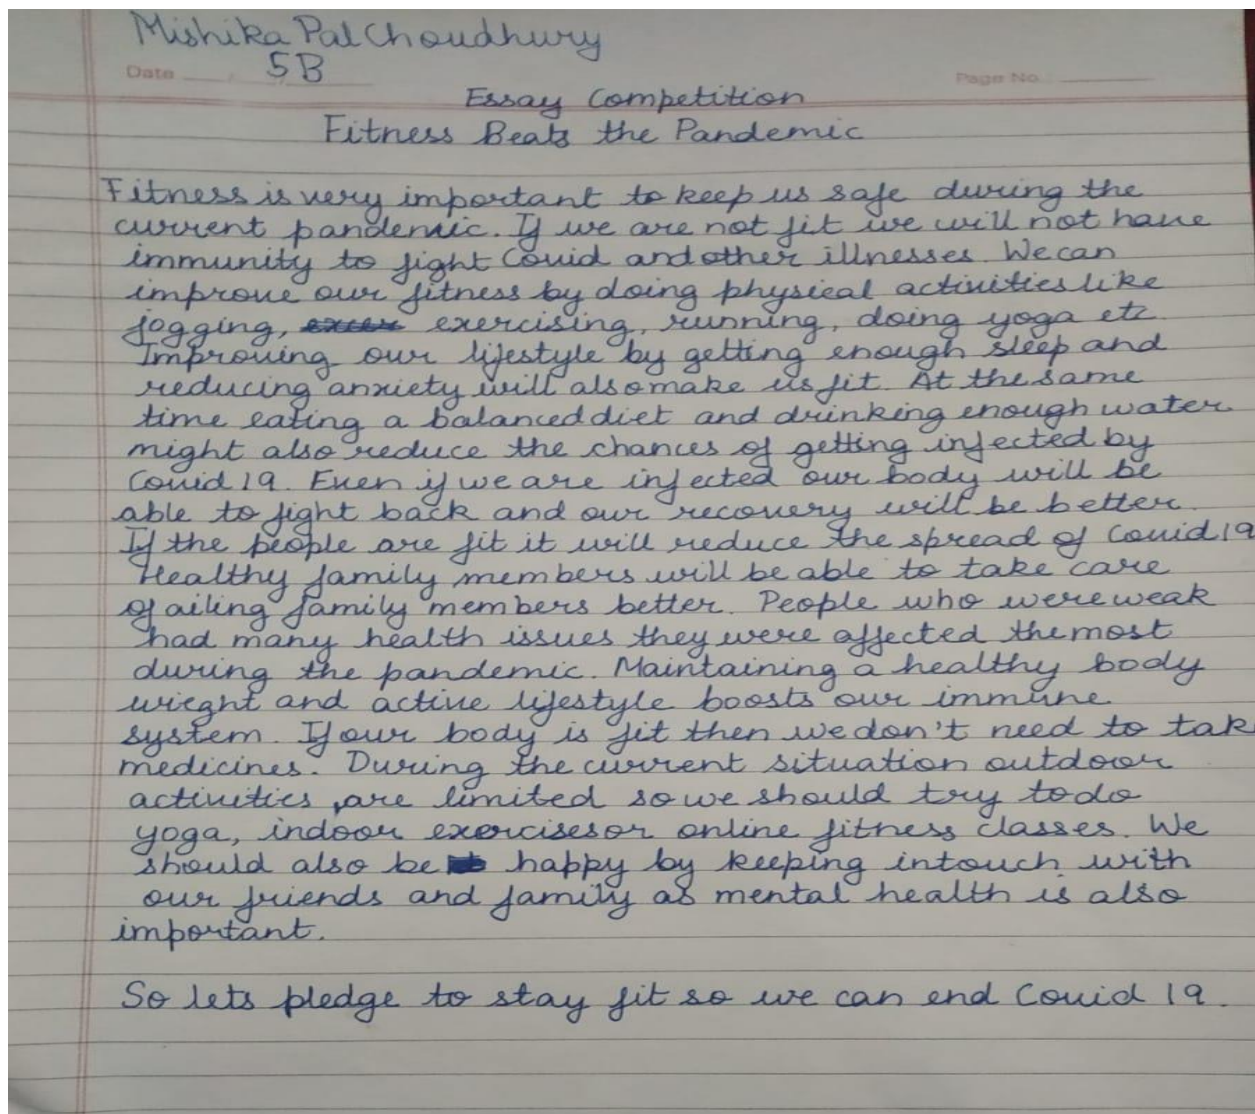 Mishika Pal Choudhury
Date 5B Page No.
Essay Competition
Fitness Beats the Pandemic
Fitness is very important to keep us safe during the
current pandemic. If we are not fit we will not have
immunity to fight Covid and other illnesses. We can
improve our fitness by doing physical activities like
jogging, exercising, running, doing yoga etc.
Improving our lifestyle by getting enough sleep and
reducing anxiety will also make us fit. At the same
time eating a balanced diet and drinking enough water
might also reduce the chances of getting infected by
Covid 19. Even if we are infected our body will be
able to fight back and our recovery will be better.
If the people are fit it will reduce the spread of Covid 19
Healthy family members will be able to take care
of ailing family members better. People who were weak
had many health issues they were affected the most
during the pandemic. Maintaining a healthy body
wieght and active lifestyle boosts our immune
system. If our body is fit then we don't need to tak
medicines. During the current situation outdoor
activities are limited so we should try to do
yoga, indoor exercises or online fitness classes. We
should also be happy by keeping in touch with
our friends and family as mental health is also
important.
So lets pledge to stay fit so we can end Covid 19.